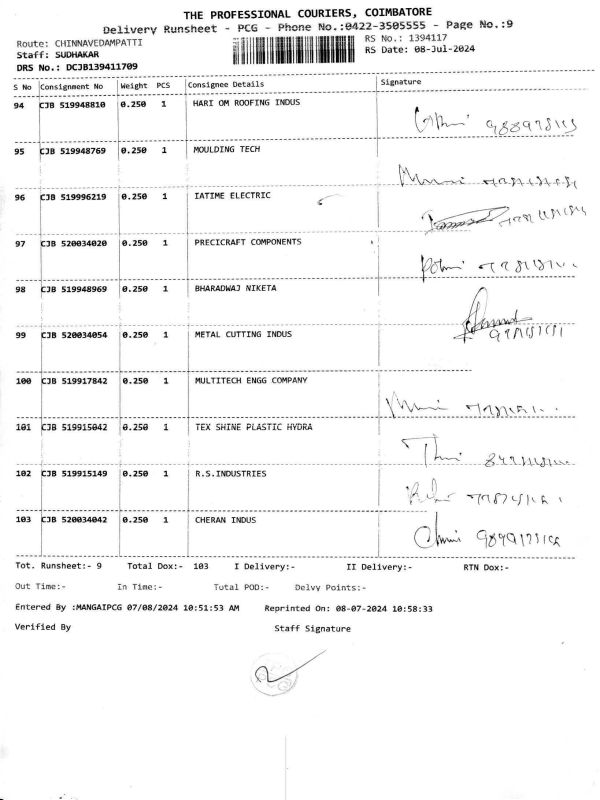 THE PROFESSIONAL COURIERS, COIMBATORE
Delivery Runsheet - PCG - Phone No.:0422-3505555 - Page No.:9
Route: CHINNAVEDAMPATTI RS No.: 1394117
Staff: SUDHAKAR RS Date: 08-Jul-2024
DRS No.: DCJB139411709
S No Consignment No Weight PCS Consignee Details Signature
94 CJB 519948810 0.250 1 HARI OM ROOFING INDUS
95 CJB 519948769 0.250 1 MOULDING TECH
96 CJB 519996219 0.250 1 IATIME ELECTRIC
97 CJB 520034020 0.250 1 PRECICRAFT COMPONENTS
98 CJB 519948969 0.250 1 BHARADWAJ NIKETA
99 CJB 520034054 0.250 1 METAL CUTTING INDUS
100 CJB 519917842 0.250 1 MULTITECH ENGG COMPANY
101 CJB 519915042 0.250 1 TEX SHINE PLASTIC HYDRA
102 CJB 519915149 0.250 1 R.S.INDUSTRIES
103 CJB 520034042 0.250 1 CHERAN INDUS
Tot. Runsheet:- 9 Total Dox:- 103 I Delivery:- II Delivery:- RTN Dox:-
Out Time:- In Time:- Total POD:- Delvy Points:-
Entered By :MANGAIPCG 07/08/2024 10:51:53 AM Reprinted On: 08-07-2024 10:58:33
Verified By Staff Signature